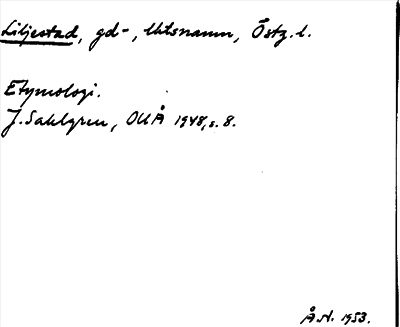 Liljestad, gd-, Utsnamn, Östg. l.
Etymologi.
J. Sahlgren, OUÅ 1948, s. 8.
Å. N. 1953.